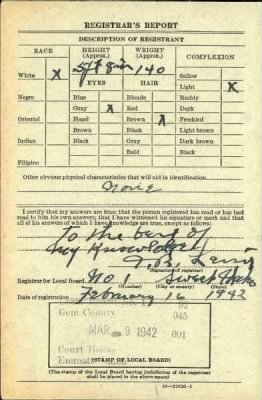 REGISTRAR'S REPORT
DESCRIPTION OF REGISTRANT
RACE HEIGHT (Approx.) WEIGHT (Approx.) COMPLEXION
White X 5 ft 8 in 140 Sallow
EYES HAIR Light X
Negro Blue Blonde Ruddy
Gray X Red Dark
Oriental Hazel Brown X Freckled
Brown Black Light brown
Indian Black Gray Dark brown
Bald Black
Filipino
Other obvious physical characteristics that will aid in identification
None
I certify that my answers are true; that the person registered has read or has had
read to him his own answers; that I have witnessed his signature or mark and that
all of his answers of which I have knowledge are true, except as follows:
To the best of
my knowledge
(Signature of registrar)
Registrar for Local Board No 1 Sweet
(Number) (City or county) (State)
Date of registration February 16 1942
Gem County
045
MAR 9 1942 001
Court House
(STAMP OF LOCAL BOARD)
(The stamp of the Local Board having jurisdiction of the registrant
shall be placed in the above space)